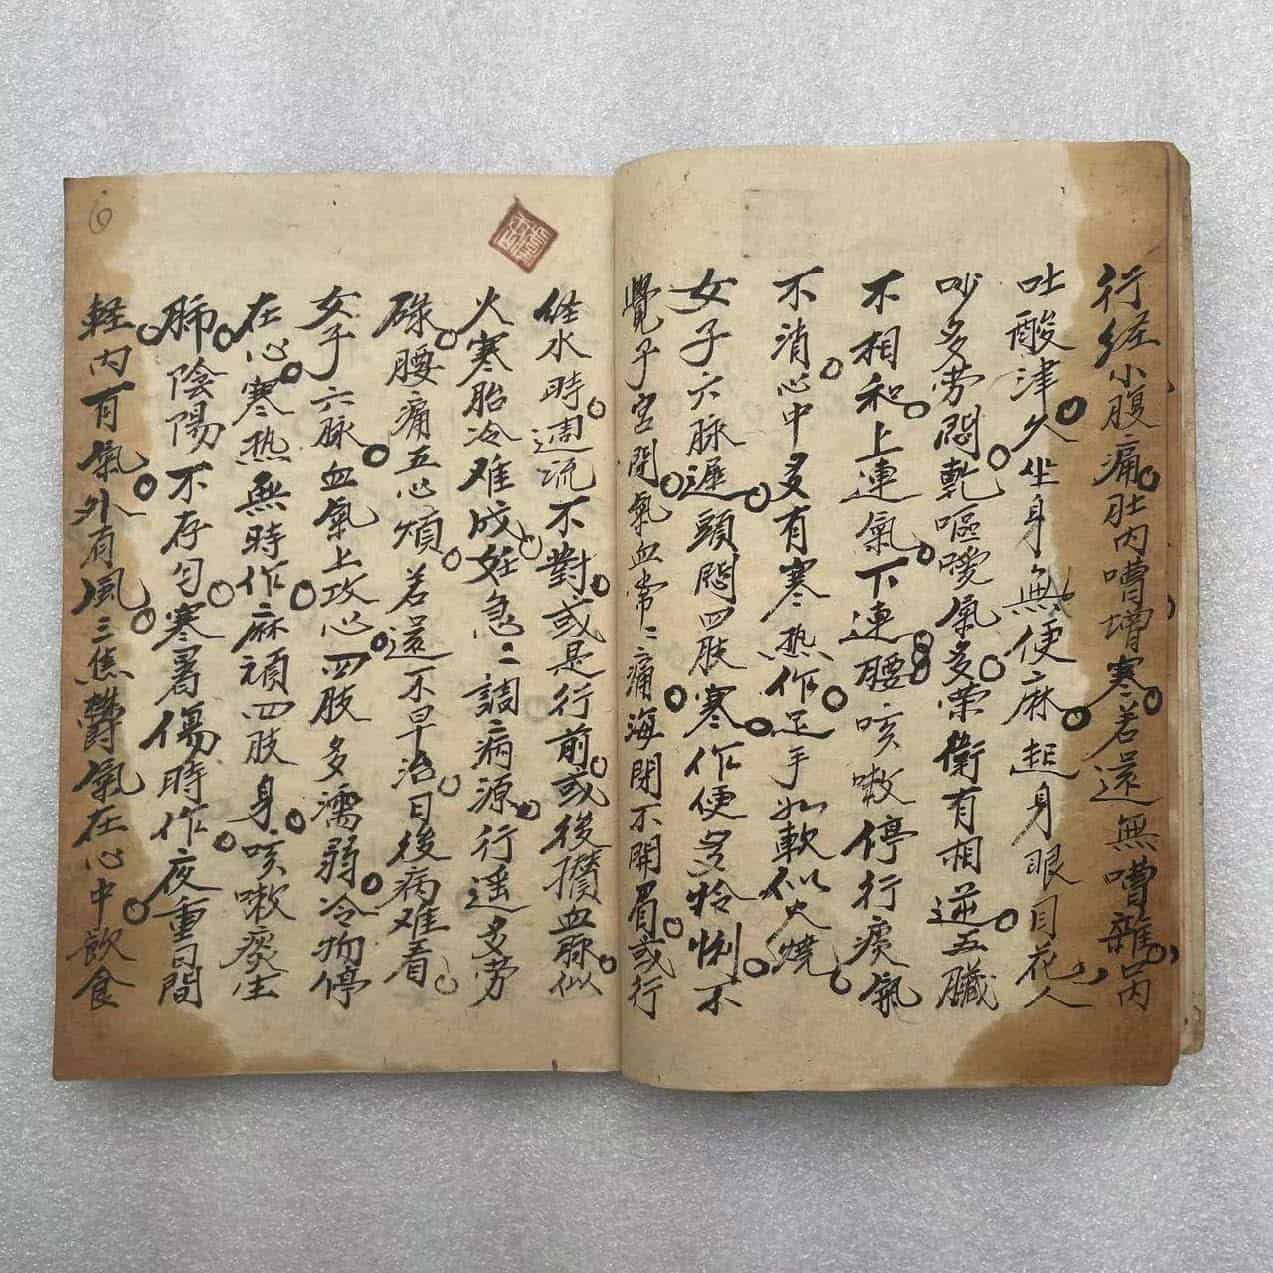 行经小腹痛肚内嘈增寒若还無嘈雜丙
吐酸津久坐身無便麻起身眼目花人
吵多劳悶乾嘔噯氣多荣衛有相逆五臟
不相和上連氣下連腰咳嗽停行痰氣
不消心中多有寒热作足手如軟似火燒
女子六脉遲頭悶四肢寒作便多怜悧不
覺子宫閉氣血常二痛海閉不開眉或行
經水時週流不對或是行前或後攢血脉似
火寒胎冷难成妊急二調二病源行遥多劳
碌腰痛五心煩若還不早治日後病难看
女子六脉血氣上攻心四肢多濡弱冷物停
在心寒热無時作麻煩四肢身咳嗽痰生
肺陰陽不存匀寒暑傷時作夜重日間
輕内有氣外有風三焦欝氣在心中飲食